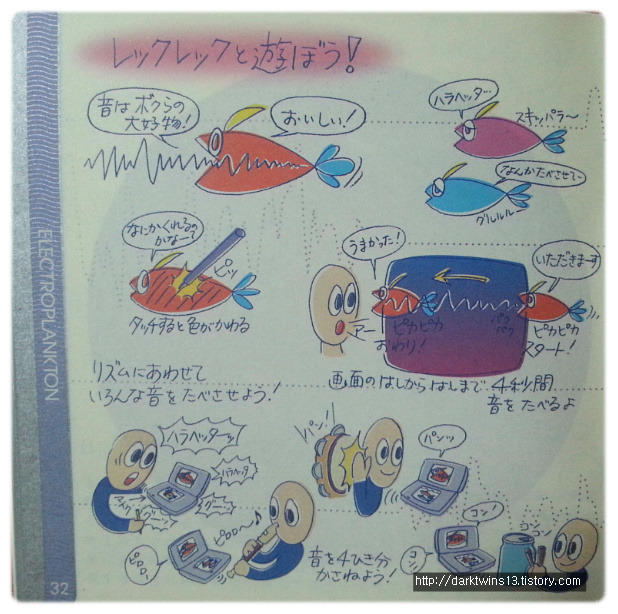 レックレックと遊ぼう!
音はボクらの
大好物!
おいしい!
ハラヘッタ…
スキッパラ～
なんかたべさせて～
グルルルー
なにかくれるの
かなー?
ピッ
タッチすると色がかわる
うまかった!
いただきまーす
アー
ピカピカ
おわり!
パク
パク
ピカピカ
スタート!
リズムにあわせて
いろんな音をたべさせよう!
画面のはしからはしまで 4秒間
音をたべるよ
ハラヘッターッ
ハラヘッタ
グニー
グニー
パンッ!
パンッ
ピロロ～♪
ピロロー
音を4ひき分
かさねよう!
コン!
コン!
コン
コン
ELECTROPLANKTON
32
http://darktwins13.tistory.com